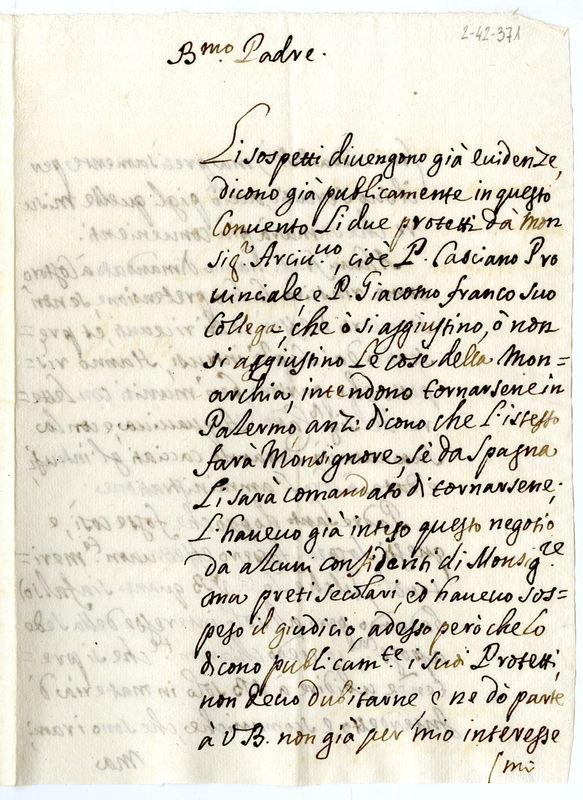 2-42-371
B.mo Padre.
Li sospetti divengono già evidenze,
dicono già publicamente in questo
Convento Li due protetti dà Mon
sig.r Arciv.vo, cioè P. Casciano Pro
vinciale, e P. Giacomo franco suo
Collega, che ò si aggiustino, ò non
si aggiustino Le cose della Mon=
archia, intendono tornarsene in
Palermo, anzi dicono che L'istesso
farà Monsignore, sè da Spagna
Li sarà comandato di tornarsene;
L'havevo già inteso questo negotio
dà alcuni confidenti di Monsig.re
ma preti secolari, ed havevo sos=
peso il giudicio, adesso però che Lo
dicono publicam.te i suoi Protetti,
non devo dubitarne e ne dò parte
à V B. non già per mio interesse